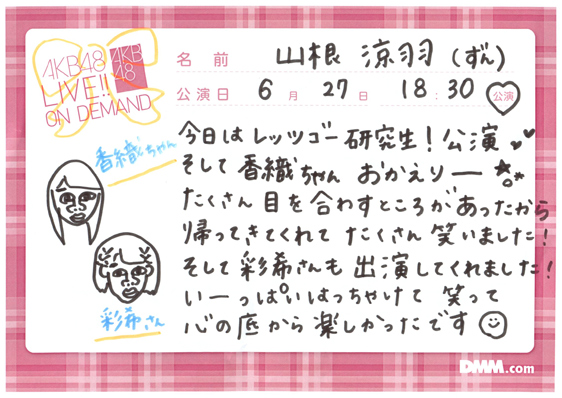 AKB48
LIVE!!
ON DEMAND
AKB
48
名前 山根 涼羽 (ずん)
公演日 6月 27日 18:30 公演
今日は レッツゴー 研究生！公演
そして 香織ちゃん おかえりー
たくさん 目を合わすところがあったから
帰ってきてくれて たくさん 笑いました！
そして彩希さんも 出演してくれました！
いーっぱいはっちゃけて 笑って
心の底から楽しかったです
香織ちゃん
彩希さん
DMM.com